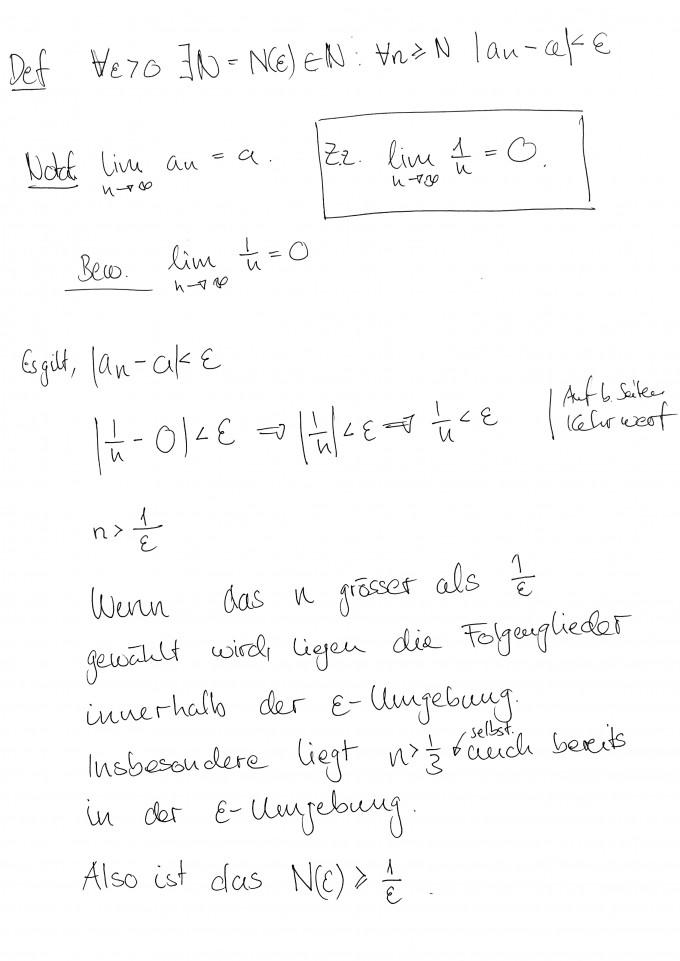 Def ∀ε>0 ∃N = N(ε) ∈ ℕ : ∀n ≥ N |an - a| < ε
Notat. lim n→∞ an = a. Zz. lim n→∞ 1/n = 0.
Bew. lim n→∞ 1/n = 0
Es gilt, |an - a| < ε
|1/n - 0| < ε ⇒ |1/n| < ε ⇒ 1/n < ε | Auf b. Seiten
Kehrwert
n > 1/ε
Wenn das n grösser als 1/ε
gewählt wird, liegen die Folgenglieder
innerhalb der ε-Umgebung.
Insbesondere liegt n > 1/3 selbst auch bereits
in der ε-Umgebung.
Also ist das N(ε) ≥ 1/ε.